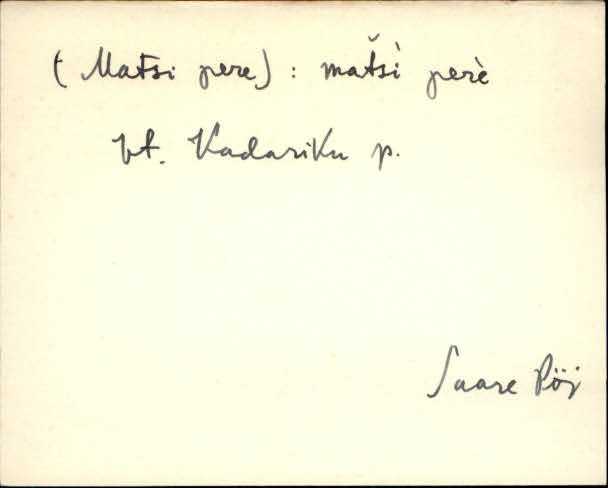 (Matsi pere) : matsì perè
vt. Kadariku p.
Saare Pöi